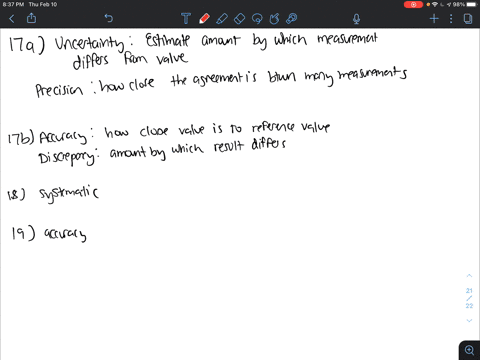 8:37 PM Thu Feb 10
98%
17a) Uncertainty: Estimate amount by which measurement
differs from value
Precision: how close the agreement is btwn many measurements
17b) Accuracy: how close value is to reference value
Discrepany: amount by which result differs
18) systmatic
19) accuracy
21
/
22